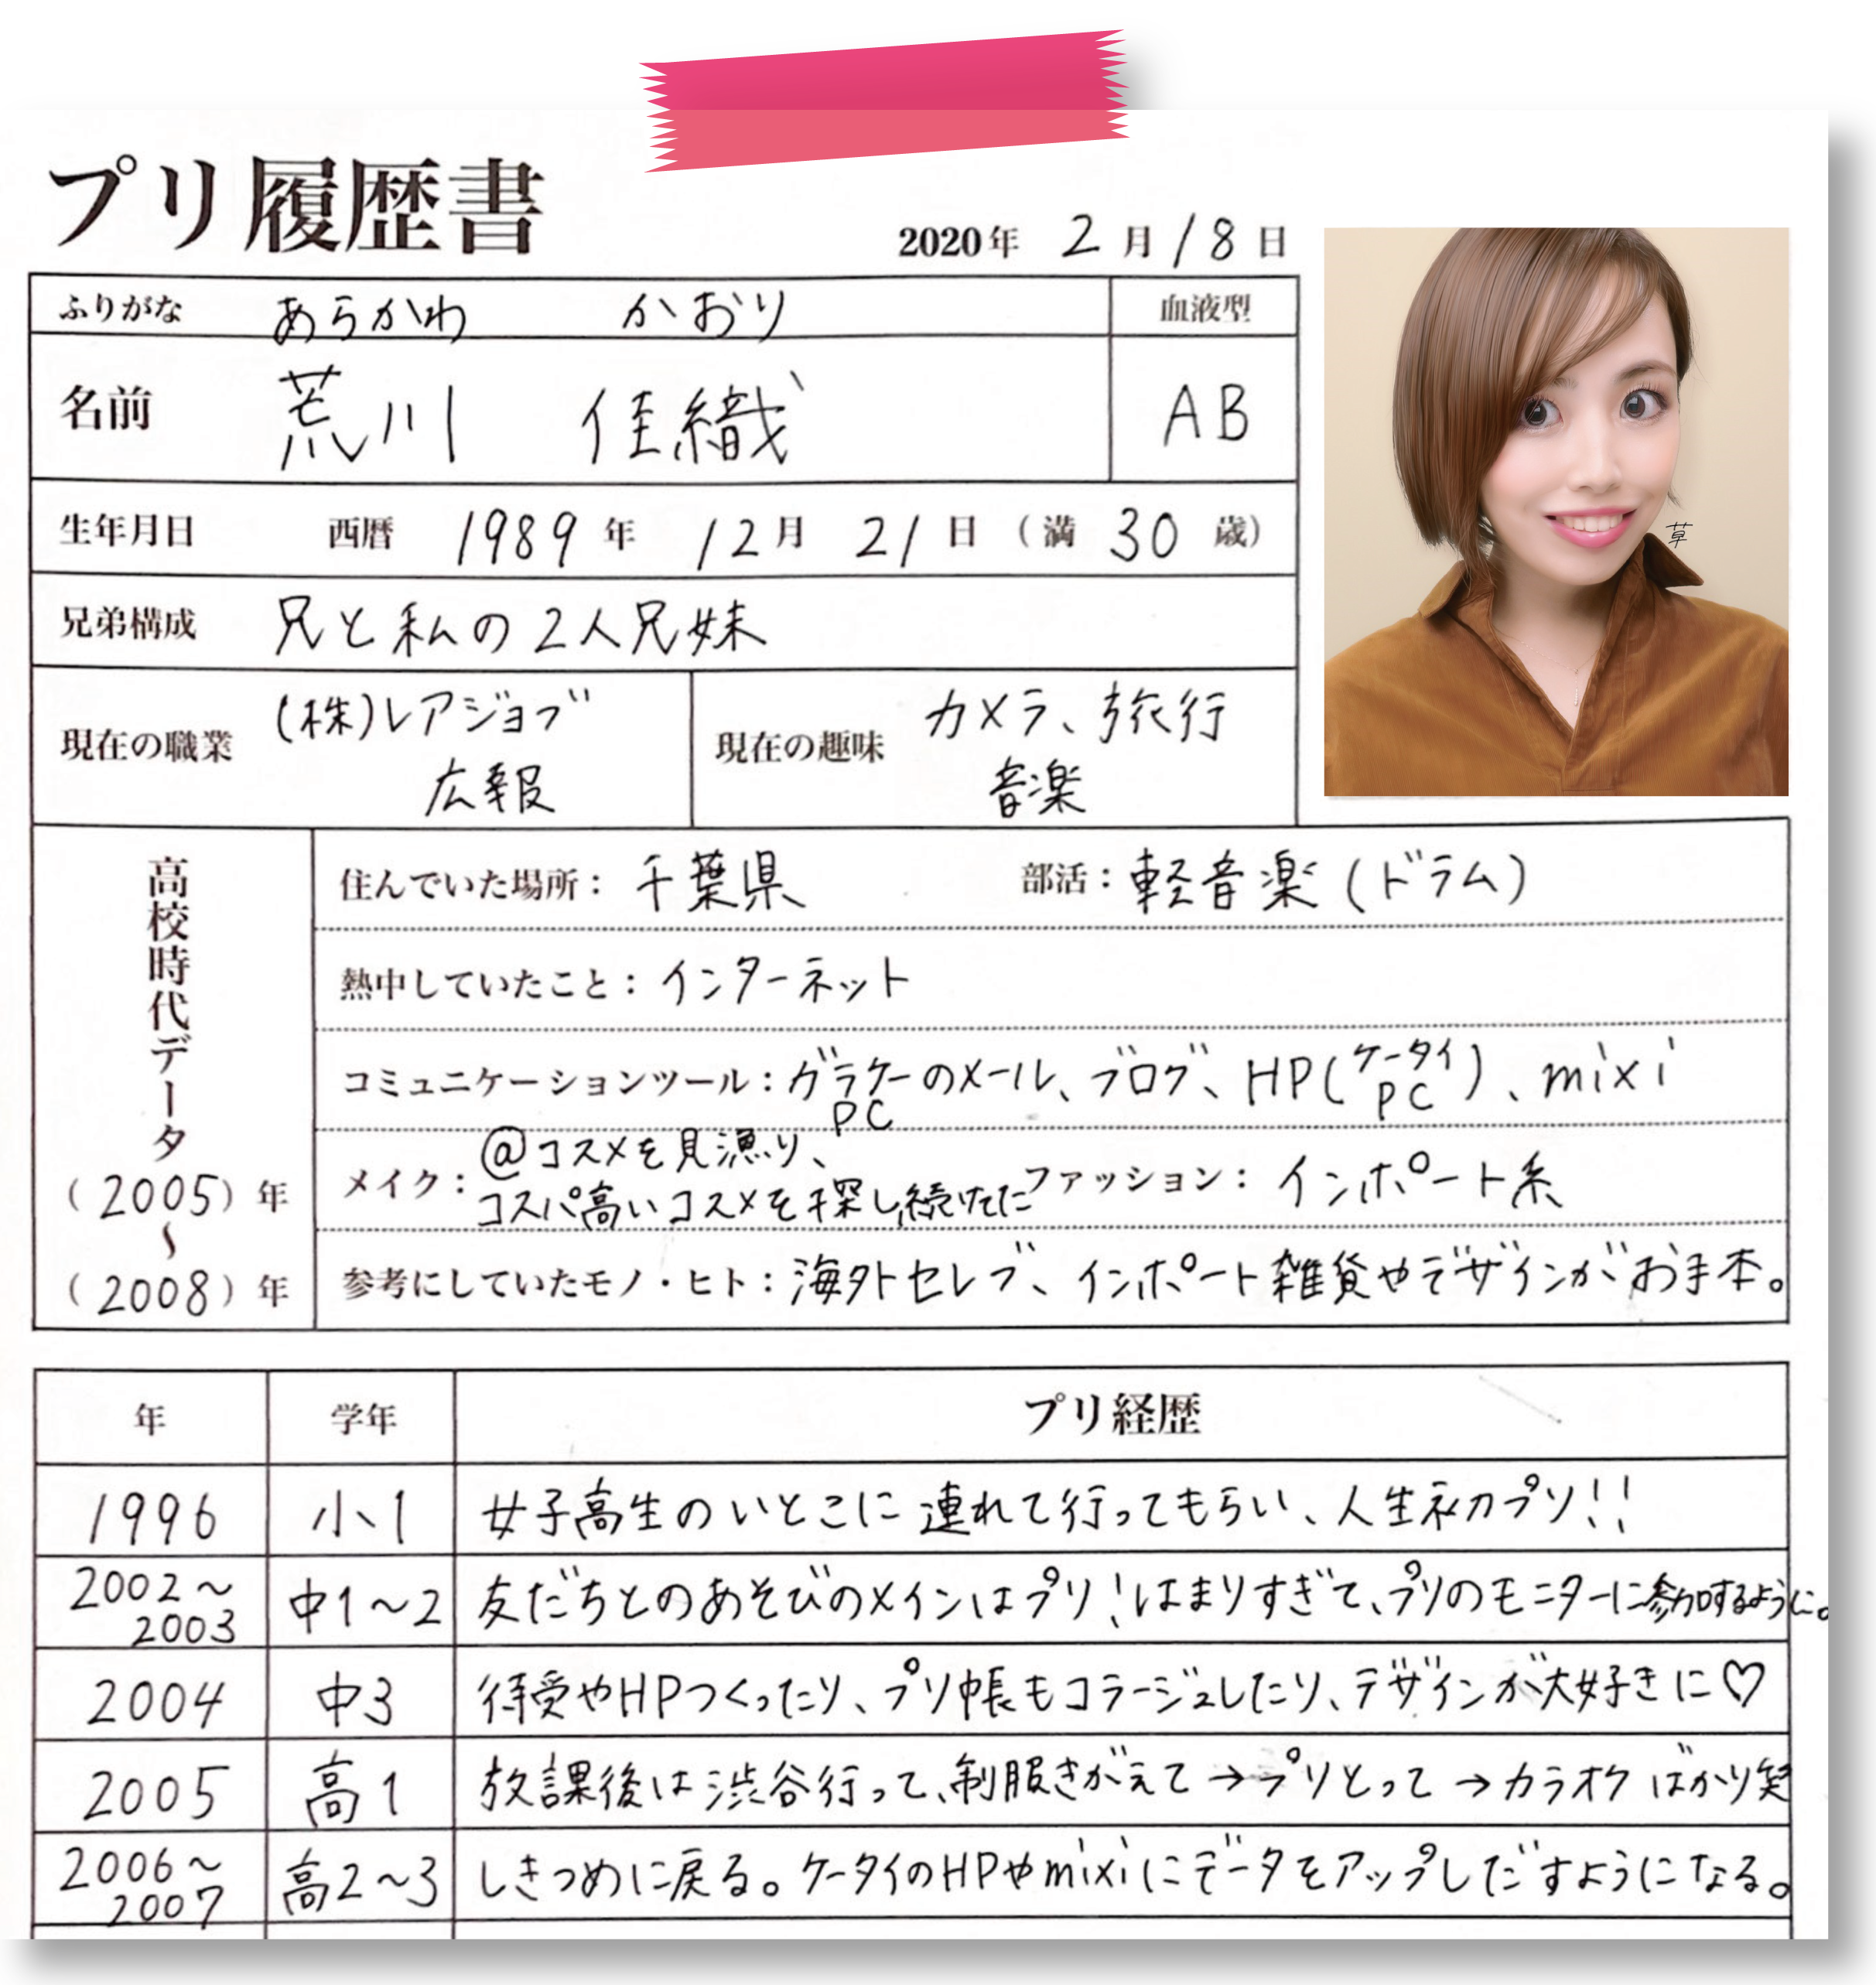 プリ履歴書
2020年 2月18日
ふりがな あらかわ かおり 血液型
名前 荒川 佳織 AB
生年月日 西暦 1989年 12月 21日 (満 30 歳)
兄弟構成 兄と私の2人兄妹
現在の職業 (株)レアジョブ
広報
現在の趣味 カメラ、旅行
音楽
草
高校時代データ
(2005)年
〜
(2008)年
住んでいた場所: 千葉県 部活: 軽音楽(ドラム)
熱中していたこと: インターネット
コミュニケーションツール: ガラケーのメール、ブログ、HP(ケータイ PC)、mixi
PC
メイク: @コスメを見漁り、
コスパ高いコスメを探し続けた
ファッション: インポート系
参考にしていたモノ・ヒト: 海外セレブ、インポート雑貨やデザインがお手本。
年 学年 プリ経歴
1996 小1 女子高生のいとこに連れて行ってもらい、人生初プリ!!
2002〜2003 中1〜2 友だちとのあそびのメインはプリ!はまりすぎて、プリのモニターに参加するように。
2004 中3 待受やHPつくったり、プリ帳もコラージュしたり、デザインが大好きに♡
2005 高1 放課後は渋谷行って、制服きがえて→プリとって→カラオケばかり笑
2006〜2007 高2〜3 しきつめに戻る。ケータイのHPやmixiにデータをアップしだすようになる。